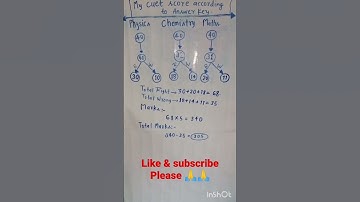 My CUET score according
to Answer Key.
Physics Chemistry Maths
40 40
30 10 18 14 20 11
Total Right → 30+20+18 = 68
Total Wrong → 10+14+11 = 35
Marks:-
68 × 5 = 340
Total Marks:-
340 - 35 = 305
Like & subscribe
Please 🙏🙏
InShOt